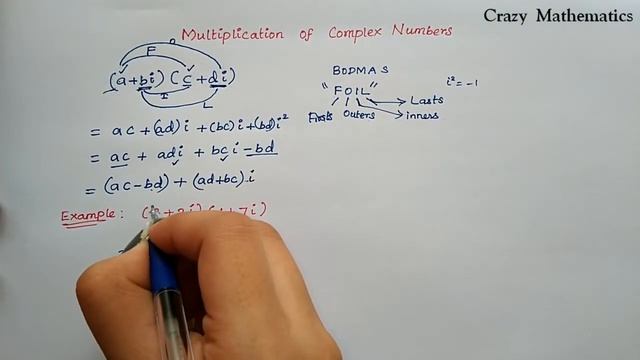 Crazy Mathematics
Multiplication of Complex Numbers
F O
(a+bi)(c+di)
I L
BODMAS
"FOIL"
i² = -1
Lasts
Firsts Outers inners
= ac + (ad)i + (bc)i + (bd)i²
= ac + adi + bci - bd
= (ac - bd) + (ad + bc).i
Example: + 7i)